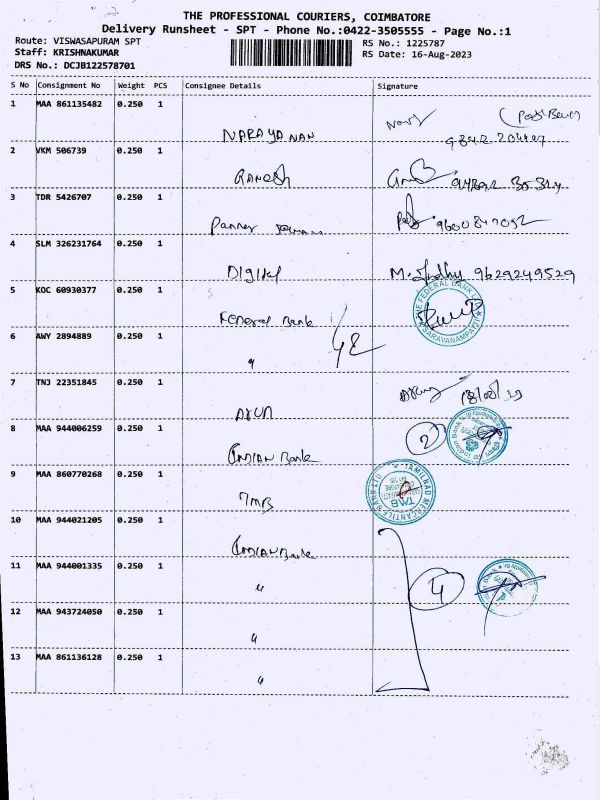 THE PROFESSIONAL COURIERS, COIMBATORE
Delivery Runsheet - SPT - Phone No.:0422-3505555 - Page No.:1
Route: VISWASAPURAM SPT
RS No.: 1225787
Staff: KRISHNAKUMAR
RS Date: 16-Aug-2023
DRS No.: DCJB122578701
S No Consignment No Weight PCS Consignee Details Signature
1 MAA 861135482 0.250 1
NARAYANAN
2 VKM 506739 0.250 1
GANESH
3 TDR 5426707 0.250 1
9600847092
4 SLM 326231764 0.250 1
Digital M. Indhu 9629249529
5 KOC 60930377 0.250 1
THE FEDERAL BANK LTD
SARAVANAMPATTI
Federal Bank
6 AWY 2894889 0.250 1
"
7 TNJ 22351845 0.250 1
ARUN
8 MAA 944006259 0.250 1
2
Indian Bank
INDIAN Bank
9 MAA 860770268 0.250 1
TAMILNAD MERCANTILE BANK LTD
TMB
TMB
10 MAA 944021205 0.250 1
INDIAN Bank
11 MAA 944001335 0.250 1
4
"
12 MAA 943724050 0.250 1
"
13 MAA 861136128 0.250 1
"